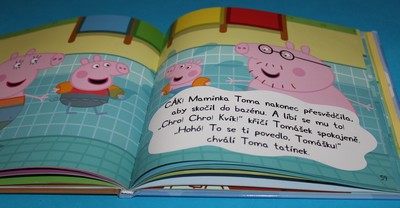 CÁK! Maminka Toma nakonec přesvědčila,
aby skočil do bazénu. A líbí se mu to!
„Chro! Chro! Kvík!“ křičí Tomášek spokojeně.
„Hohó! To se ti povedlo, Tomášku!“
chválí Toma tatínek.
59